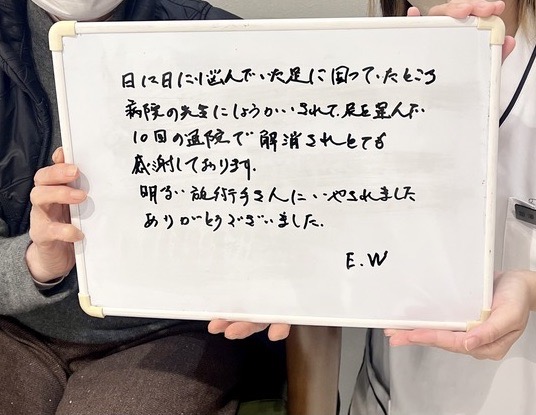 日に日に悩んでいた足に困っていたところ
病院の先生にしょうかいされて、足を運んだ
10回の通院で解消されとても
感謝しております。
明るい施術者さんにいやされました
ありがとうございました。
E.W